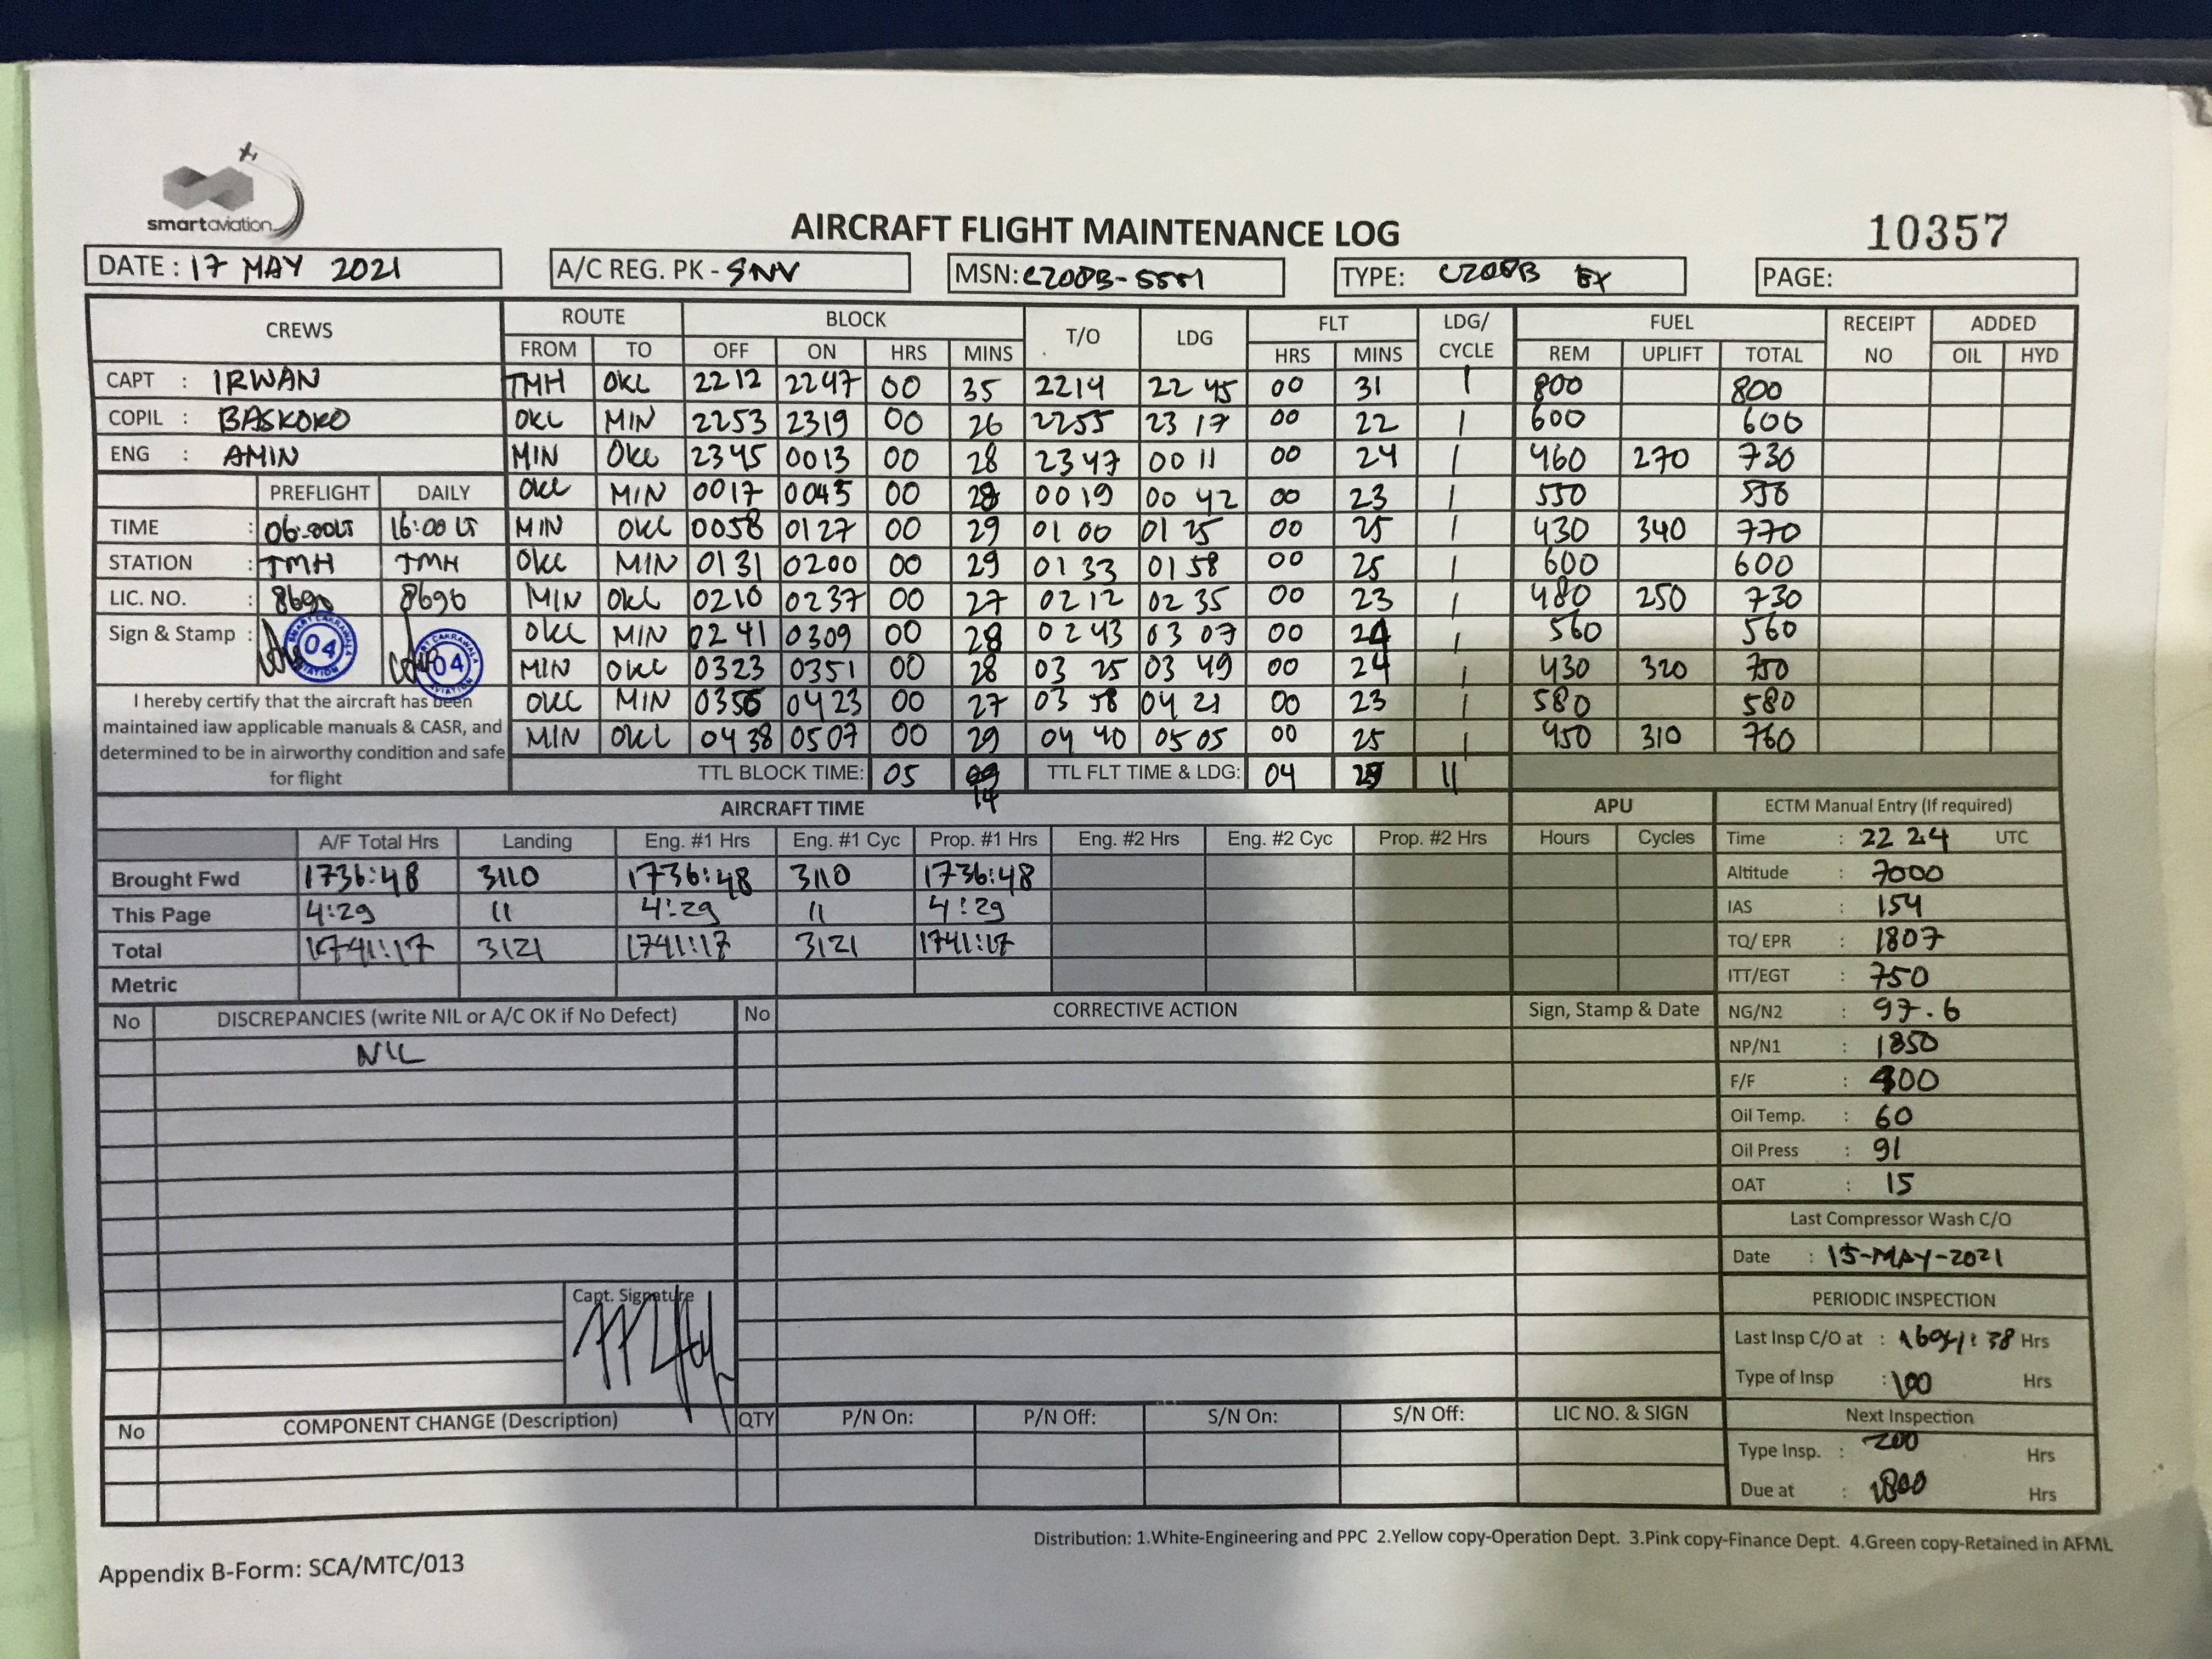 smartaviation
AIRCRAFT FLIGHT MAINTENANCE LOG
10357
DATE : 17 MAY 2021 A/C REG. PK - SNV MSN: C208B-5551 TYPE: C208B EX PAGE:
CREWS ROUTE BLOCK T/O LDG FLT LDG/ CYCLE FUEL RECEIPT NO ADDED
FROM TO OFF ON HRS MINS HRS MINS REM UPLIFT TOTAL OIL HYD
CAPT : IRWAN TMH OKL 2212 2247 00 35 2214 22 45 00 31 1 800 800
COPIL : BASKORO OKL MIN 2253 2319 00 26 2255 23 17 00 22 1 600 600
ENG : AMIN MIN OKL 2345 0013 00 28 2347 00 11 00 24 1 460 270 730
PREFLIGHT DAILY OKL MIN 0017 0045 00 28 00 19 00 42 00 23 1 550 550
TIME : 06:00LT 16:00 LT MIN OKL 0058 0127 00 29 01 00 01 25 00 25 1 430 340 770
STATION : TMH TMH OKL MIN 0131 0200 00 29 01 33 01 58 00 25 1 600 600
LIC. NO. : 8690 8690 MIN OKL 0210 0237 00 27 02 12 02 35 00 23 1 480 250 730
Sign & Stamp : 04 04 OKL MIN 0241 0309 00 28 02 43 03 07 00 24 1 560 560
MIN OKL 0323 0351 00 28 03 25 03 49 00 24 1 430 320 750
I hereby certify that the aircraft has been
maintained iaw applicable manuals & CASR, and
determined to be in airworthy condition and safe
for flight
OKL MIN 0356 0423 00 27 03 58 04 21 00 23 1 580 580
MIN OKL 0438 0507 00 29 04 40 05 05 00 25 1 450 310 760
TTL BLOCK TIME: 05 14 TTL FLT TIME & LDG: 04 29 11
AIRCRAFT TIME APU ECTM Manual Entry (If required)
A/F Total Hrs Landing Eng. #1 Hrs Eng. #1 Cyc Prop. #1 Hrs Eng. #2 Hrs Eng. #2 Cyc Prop. #2 Hrs Hours Cycles Time : 22 24 UTC
Brought Fwd 1736:48 3110 1736:48 3110 1736:48 Altitude : 7000
This Page 4:29 11 4:29 11 4:29 IAS : 154
Total 1741:17 3121 1741:17 3121 1741:17 TQ/ EPR : 1807
Metric ITT/EGT : 750
No DISCREPANCIES (write NIL or A/C OK if No Defect) No CORRECTIVE ACTION Sign, Stamp & Date NG/N2 : 97.6
NIL NP/N1 : 1850
F/F : 400
Oil Temp. : 60
Oil Press : 91
OAT : 15
Last Compressor Wash C/O
Date : 15-MAY-2021
Capt. Signature
PERIODIC INSPECTION
Last Insp C/O at : Hrs
Type of Insp : 100 Hrs
No COMPONENT CHANGE (Description) QTY P/N On: P/N Off: S/N On: S/N Off: LIC NO. & SIGN Next Inspection
Type Insp. : 200 Hrs
Due at : 1800 Hrs
Distribution: 1.White-Engineering and PPC 2.Yellow copy-Operation Dept. 3.Pink copy-Finance Dept. 4.Green copy-Retained in AFML
Appendix B-Form: SCA/MTC/013